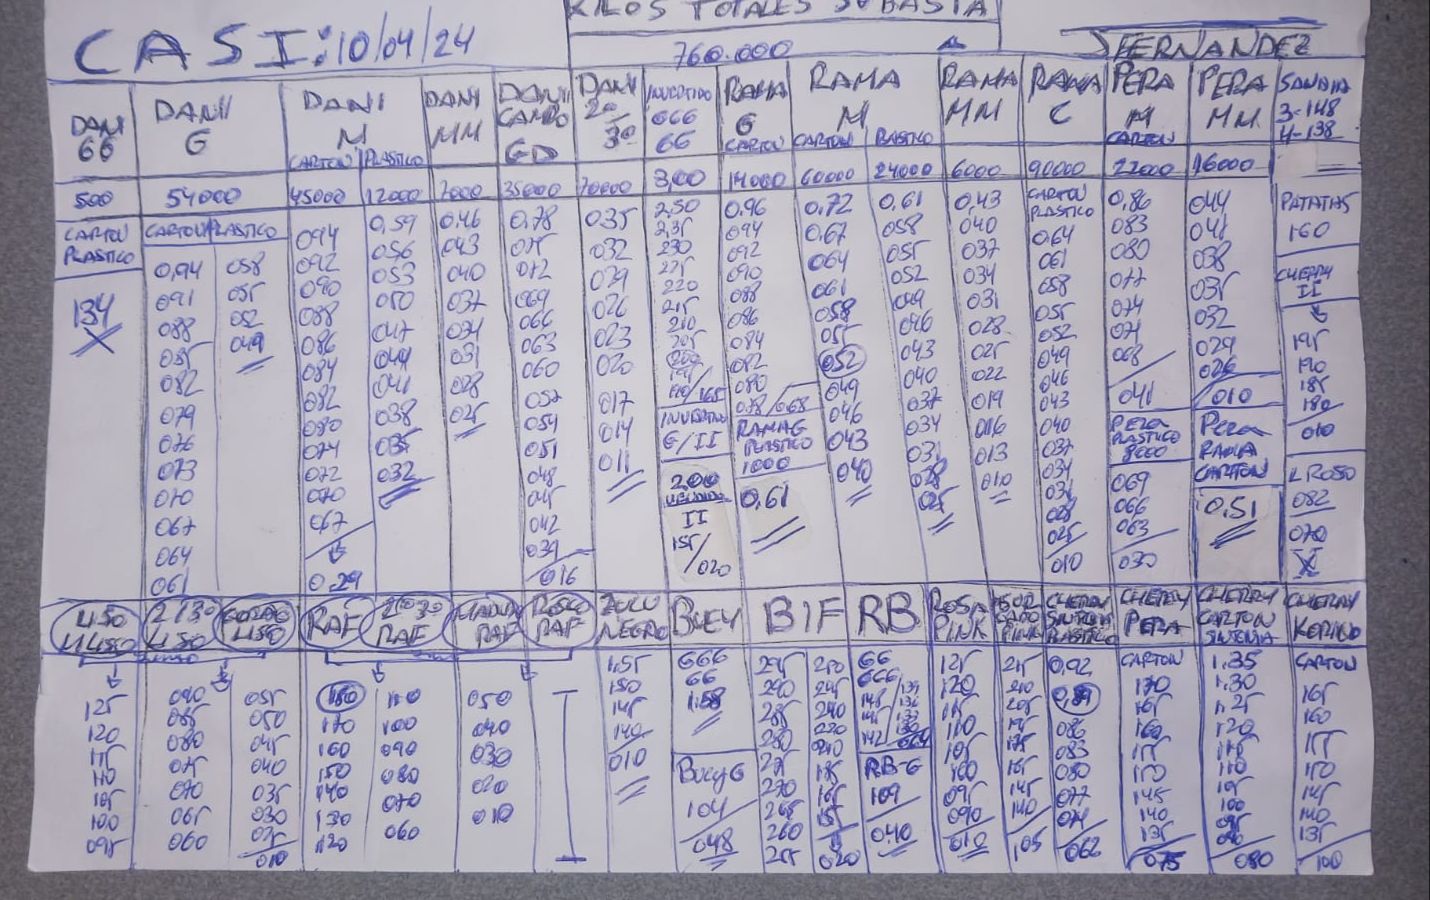 KILOS TOTALES SUBASTA
CASI: 10/04/24
760.000
J FERNANDEZ
DANI 66
DANI G
DANI M
CARTON PLASTICO
DANI MM
DANI CAMPO GD
DANI 2º 3º
INVERTIDO 666 66
RAMA G CARTON
RAMA M
CARTON PLASTICO
RAMA MM
RAMA C
PERA M CARTON
PERA MM
SANDIA 3-148 4-138
500
54000
45000
12000
7000
35000
70000
3,00
14000
60000
24000
6000
90000
22000
16000
CARTON PLASTICO
134
CARTON PLASTICO
0,94 058
091 055
088 052
085 049
082
079
076
073
070
067
064
061
094
092
090
088
086
084
082
080
074
072
070
067
0.29
0,59
056
053
050
047
044
041
038
035
032
0.46
043
040
037
034
031
028
025
0,78
075
072
069
066
063
060
057
054
051
048
045
042
039
016
0.35
032
029
026
023
020
017
014
011
2,50
2,35
230
225
220
215
210
205
200
195
190/165
INVERTIDO G/II
200
VENDIDO
II
155/020
0.96
094
092
090
088
086
084
082
080
078/068
RAMA G PLASTICO 1000
0,61
0,72
0,67
064
061
058
055
052
049
046
043
040
0,61
058
055
052
049
046
043
040
037
034
031
028
025
0,43
040
037
034
031
028
025
022
019
016
013
010
CARTON PLASTICO
0.64
061
058
055
052
049
046
043
040
037
034
031
028
025
010
0,86
083
080
077
074
071
068
041
PERA PLASTICO 8000
069
066
063
030
044
041
038
035
032
029
026
010
PERA RAMA CARTON
0,51
PATATAS
160
CHERRY II
195
190
185
180
010
L ROSO
082
070
X
LISO
2º/3º LISO
LISO
RAF
2º 3º RAF
RAF
ROSCO RAF
ZULU NEGRO
BUEY
BIF
RB
ROSA PINK
PINK
CHERRY SINTONIA PLASTICO
CHERRY PERA
CHERRY CARTON SINTONIA
CHERRY KORINO
125
120
115
110
105
100
095
090 055
085 050
080 045
075 040
070 035
065 030
060 025
010
180 110
170 100
160 090
150 080
140 070
130 060
120
050
040
030
020
010
1.55
150
145
140
010
666
66
1.58
Buey G
104
048
295 250
290 245
285 240
280 230
275 210
270 185
265 165
260 155
255 020
66
666
145/139
145/136
142/130
064
RB-G
109
040
125
120
115
110
105
100
095
090
010
215
210
205
195
175
165
145
140
105
0,92
0,89
086
083
080
077
074
062
CARTON
170
165
160
155
150
145
140
135
075
1.35
1.30
1.25
120
115
110
105
100
095
090
080
CARTON
165
160
155
150
145
140
135
100